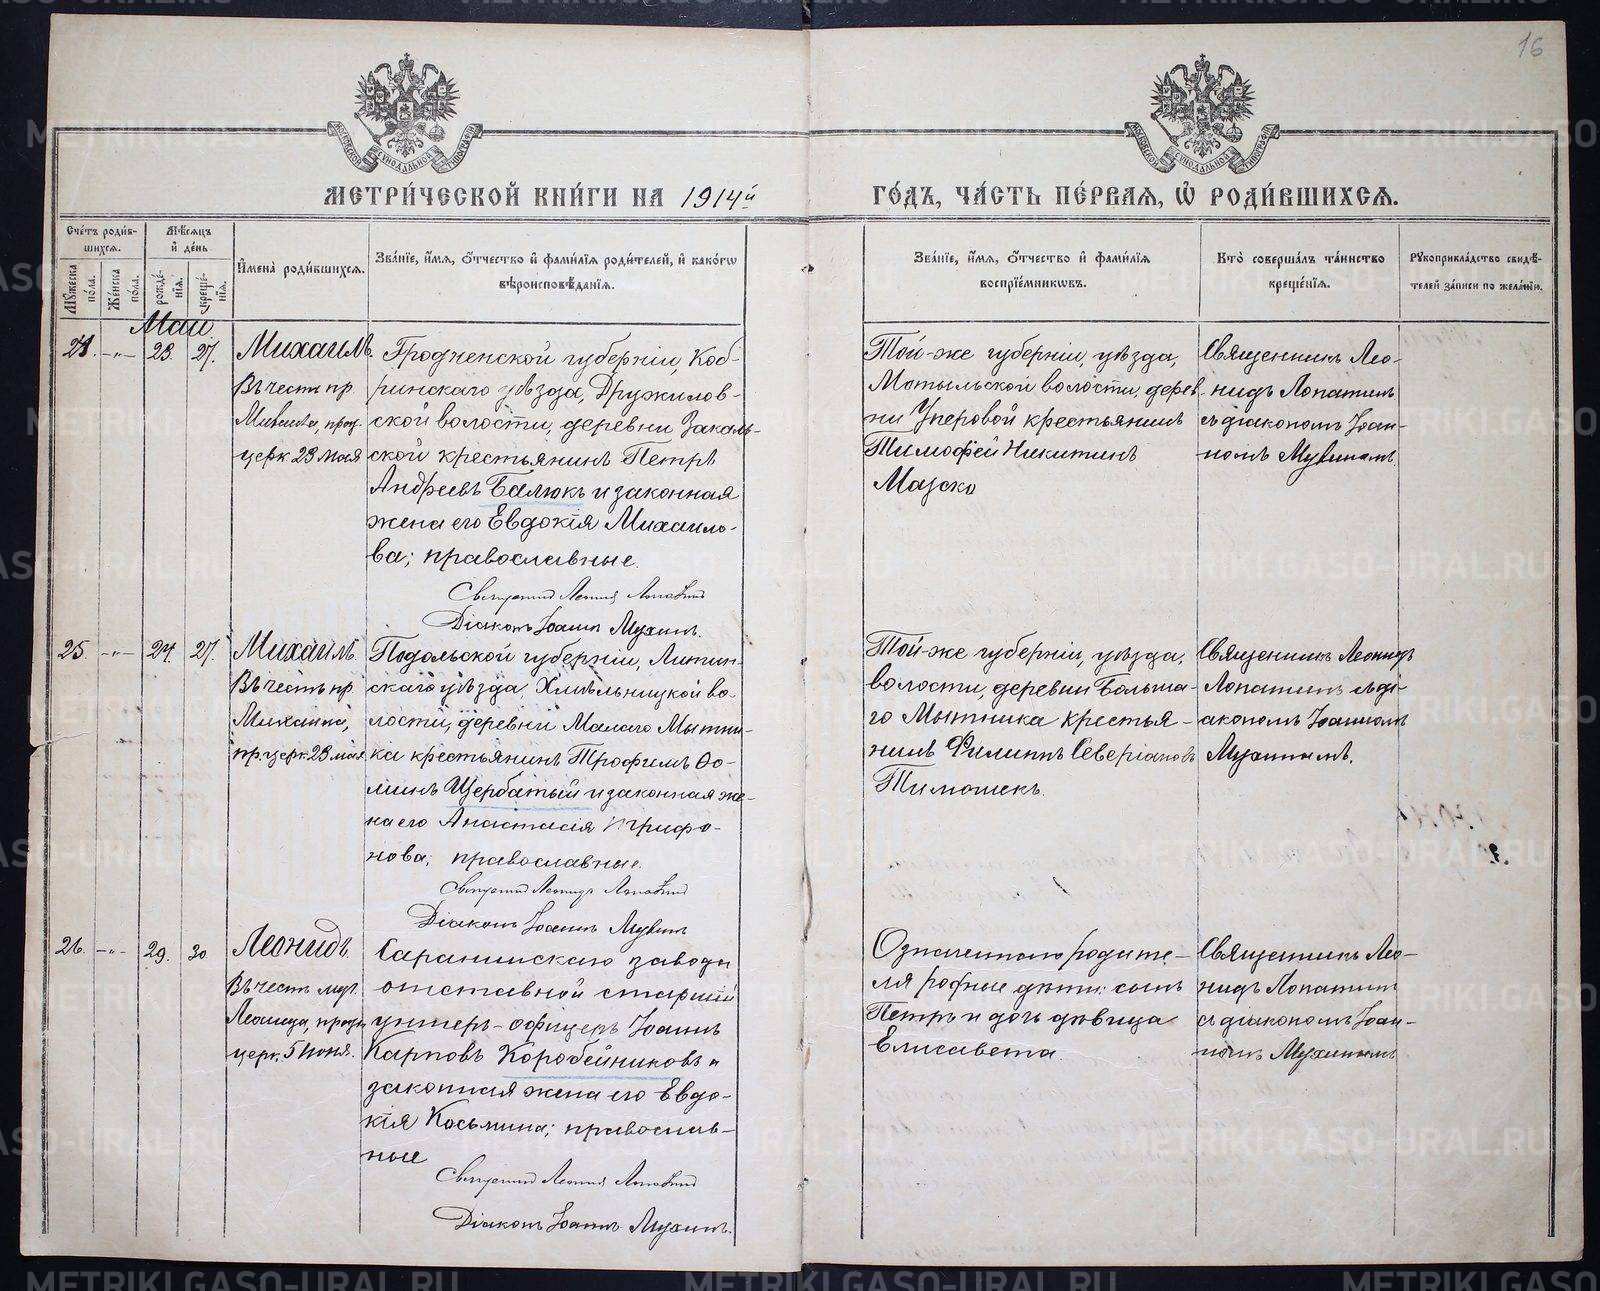 16
МОСКОВСКОЙ СѴНОДАЛЬНОЙ ТИПОГРАФІИ
МОСКОВСКОЙ СѴНОДАЛЬНОЙ ТИПОГРАФІИ
МЕТРИ́ЧЕСКОЙ КНИ́ГИ НА 1914й
ГО́ДЪ, ЧА́СТЬ ПЕ́РВАЯ, Ѡ҆ РОДИ́ВШИХСЯ.
Сче́тъ роди́в-
шихся.
Мѣ́сяцъ
и҆ де́нь
Му́жеска по́ла.
Же́нска по́ла.
рожде́-
нія.
креще́-
нія.
И҆мена̀ роди́вшихся.
Зва́ніе, и҆́мя, ѻ҆́тчество и҆ фами́лія роди́телей, и҆ како́гѡ
вѣроисповѣ́данія.
Зва́ніе, и҆́мя, ѻ҆́тчество и҆ фами́лія
воспріе́мниковъ.
Кто̀ соверша́лъ та́инство
креще́нія.
Рукоприкла́дство свидѣ́-
телей за́писи по жела́нію.
Маи
24. -„- 23. 27.
Михаилъ.
Въ честь пр.
Михаила, празд.
церк. 23 мая
Гродненской губерніи, Коб-
ринскаго уѣзда, Дружилов-
ской волости, деревни Закаль-
ской крестьянинъ Петръ
Андреевъ Балюкъ и законная
жена его Евдокія Михаило-
ва; православные.
Священникъ Леонидъ Лопатинъ
Діаконъ Іоаннъ Мухинъ.
Той-же губерніи, уѣзда,
Мотыльской волости, дерев-
ни Упировой крестьянинъ
Тимофей Никитинъ
Мазско
Священникъ Лео-
нидъ Лопатинъ
съ діакономъ Іоан-
номъ Мухинымъ.
25. -„- 24. 27.
Михаилъ.
Въ честь пр.
Михаила,
пр. церк. 23 мая
Подольской губерніи, Литин-
скаго уѣзда, Хмѣльницкой во-
лости, деревни Малаго Мытни-
ка крестьянинъ Трофимъ Ѳо-
минъ Щербатый и законная же-
на его Анастасія Трифо-
нова; православные.
Священникъ Леонидъ Лопатинъ
Діаконъ Іоаннъ Мухинъ
Той-же губерніи, уѣзда,
волости, деревни Больша-
го Мытника крестья-
нинъ Филиппъ Северіановъ
Тимошекъ.
Священникъ Леонидъ
Лопатинъ съ ді-
акономъ Іоанномъ
Мухинымъ.
26. -„- 29. 30.
Леонидъ.
Въ честь муч.
Леонида, празд.
церк. 5 Іюня.
Саранинскаго завода
отставной старшій
унтеръ-офицеръ Іоаннъ
Карповъ Коробейниковъ и
законная жена его Евдо-
кія Косьмина; православ-
ные
Священникъ Леонидъ Лопатинъ
Діаконъ Іоаннъ Мухинъ.
Означеннаго родите-
ля родные дѣти: сынъ
Петръ и дочь дѣвица
Елисавета.
Священникъ Лео-
нидъ Лопатинъ
съ діакономъ Іоан-
номъ Мухинымъ
METRIKI.GASO-URAL.RU